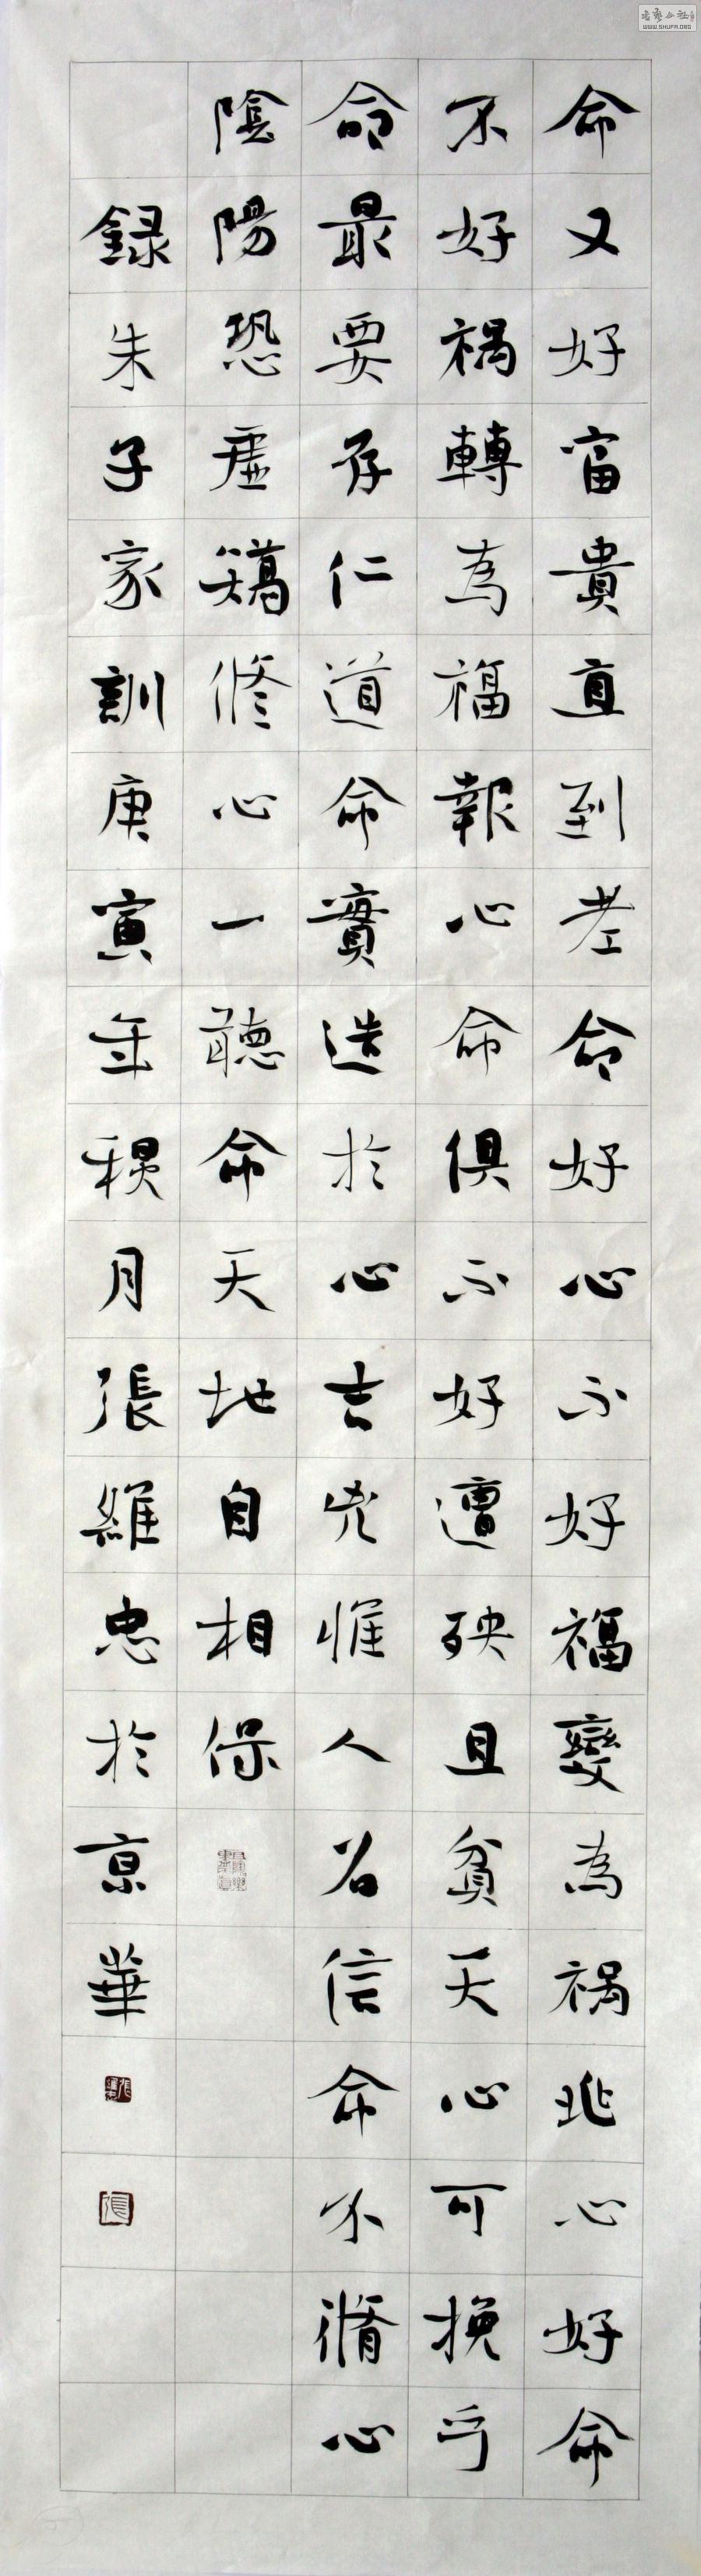 命又好富貴直到老命好心不好福變為禍兆心好命
不好禍轉為福報心命俱不好遭殃且貧夭心可挽乎
命最要存仁道命實造於心吉兇惟人召信命不脩心
陰陽恐虛矯修心一聽命天地自相保
録朱子家訓庚寅年月張維忠於京華
書藝公社
WWW.SHUFA.ORG